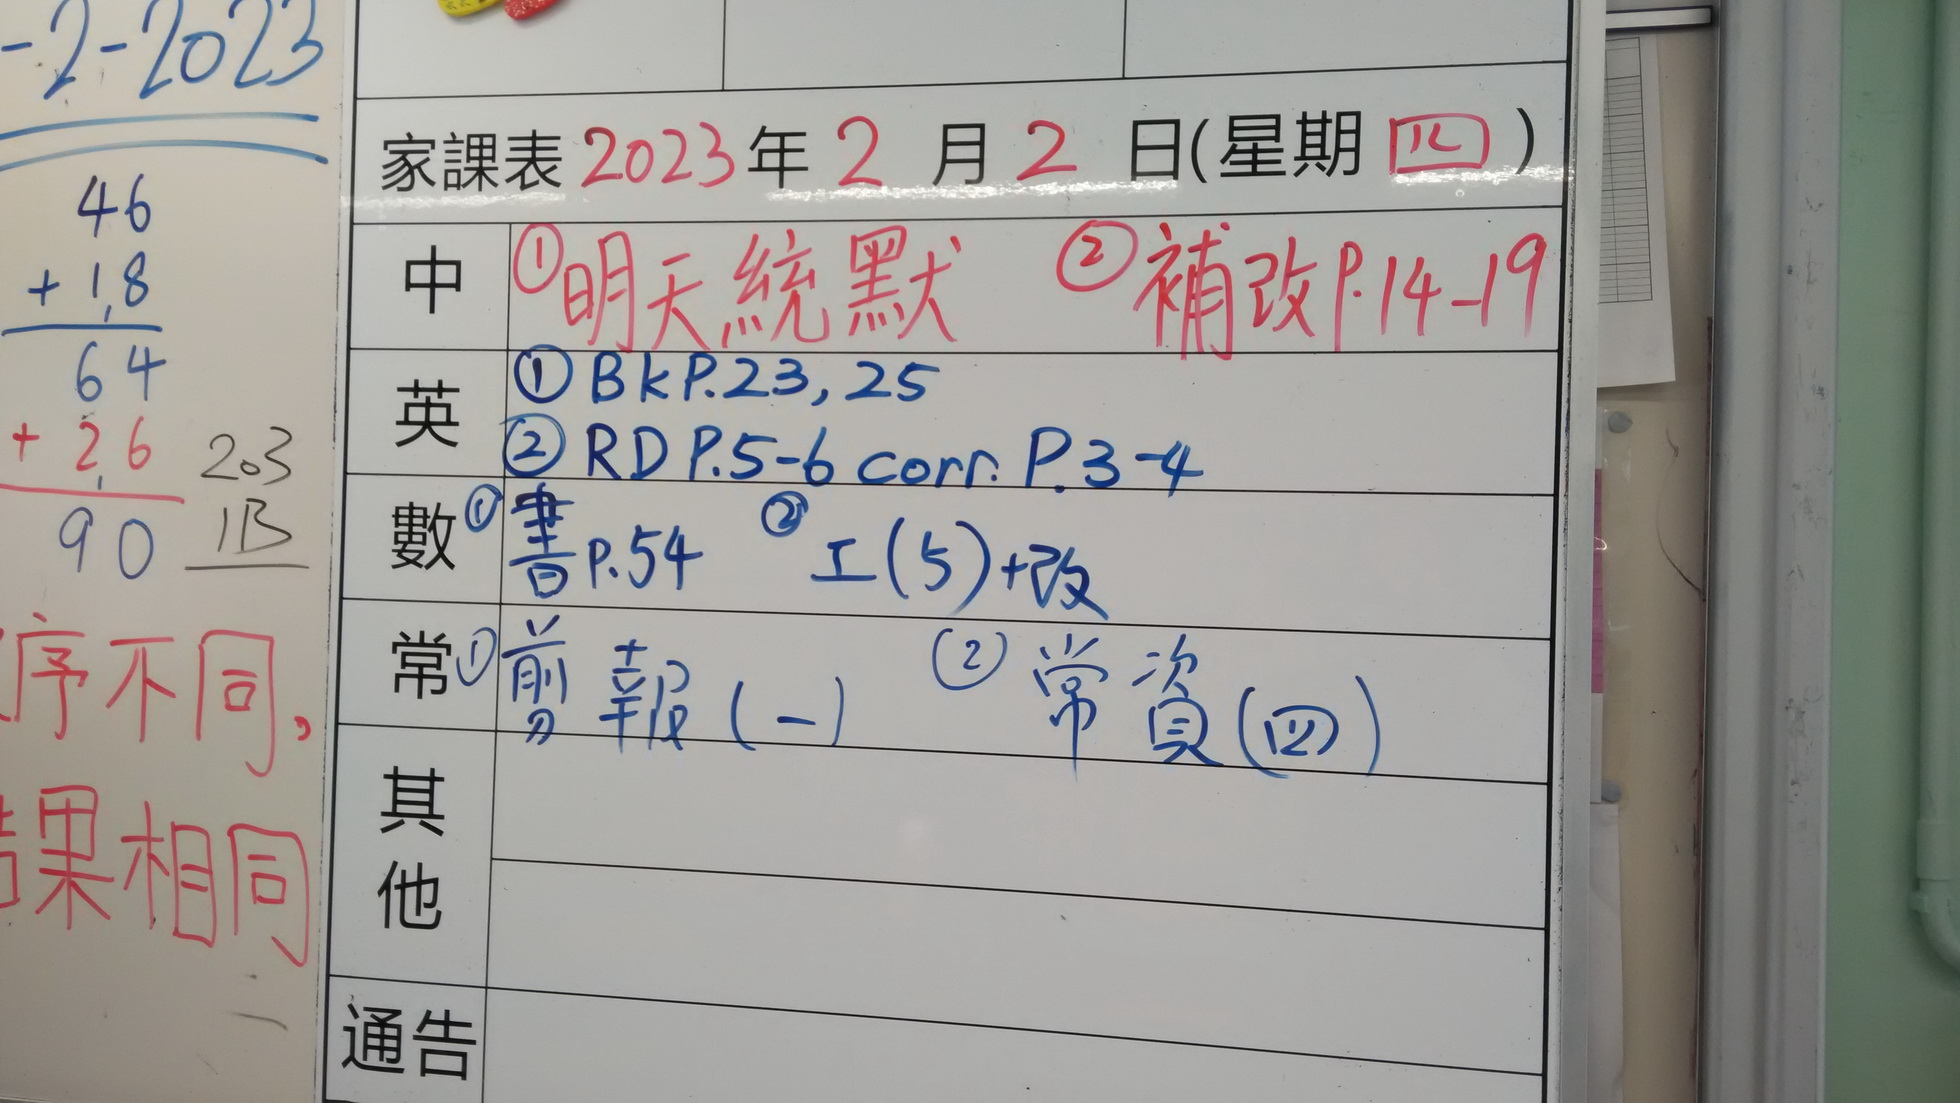 -2-2023
46
+18
64
+26
90
203
1B
序不同,
果相同
家課表 2023年 2 月 2 日(星期 四)
中 ①明天統默 ②補改P.14-19
英 ① BkP.23, 25
② RD P.5-6 corr. P.3-4
數 ①書P.54 ②工(5)+改
常 ①剪報(一) ②常資(四)
其他
通告